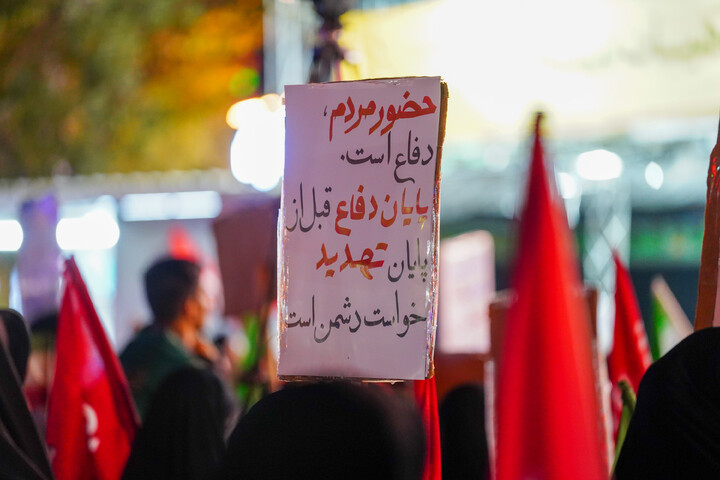 حضور مردم،
دفاع است.
پایان دفاع قبل از
پایان تهدید
خواست دشمن است